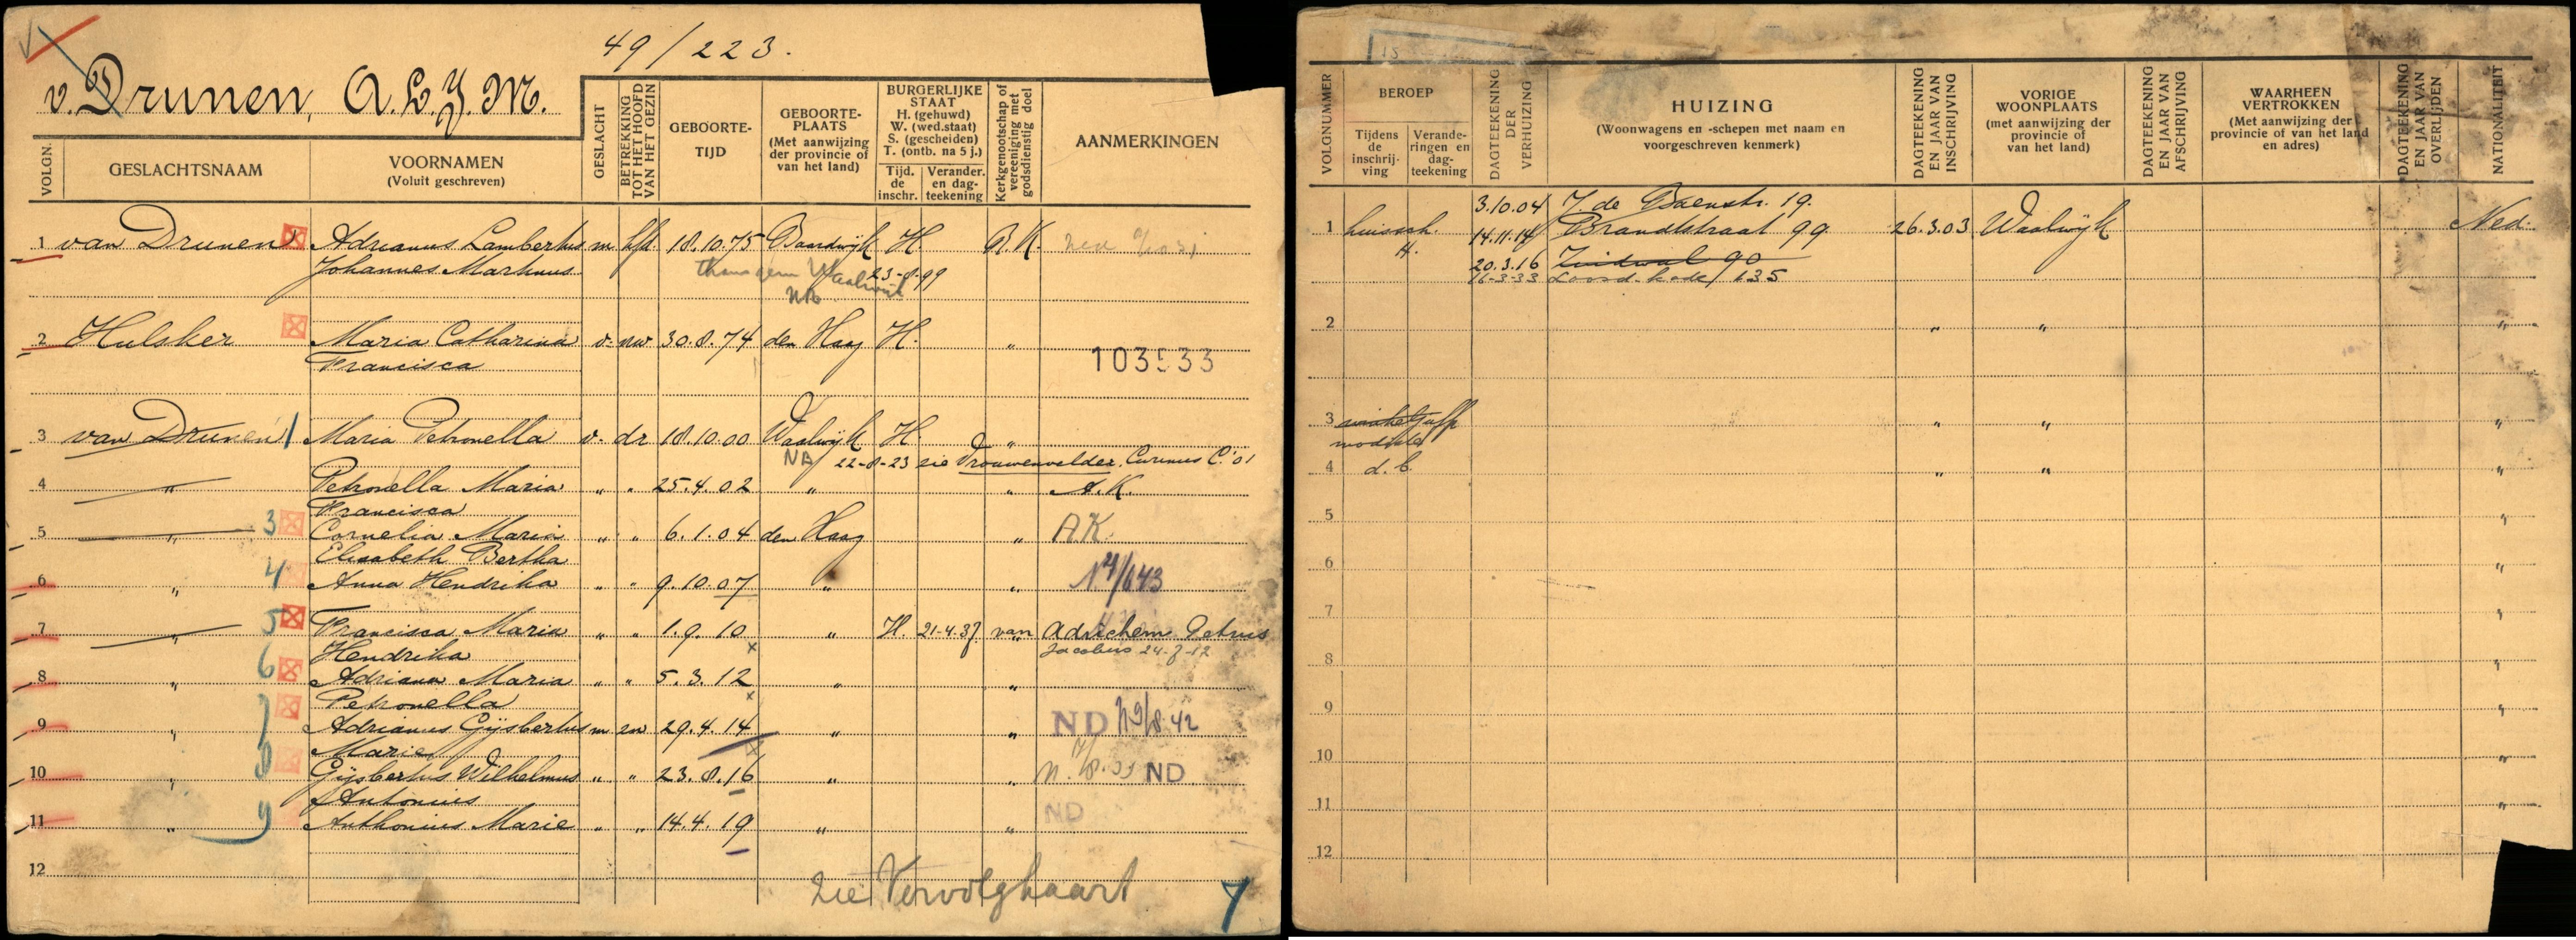 49/223.
v. Drunen, A.L.J.M.
VOLGN.
GESLACHTSNAAM
VOORNAMEN
(Voluit geschreven)
GESLACHT
BETREKKING TOT HET HOOFD VAN HET GEZIN
GEBOORTE-TIJD
GEBOORTE-PLAATS
(Met aanwijzing der provincie of van het land)
BURGERLIJKE STAAT
H. (gehuwd)
W. (wed.staat)
S. (gescheiden)
T. (ontb. na 5 j.)
Tijd. de inschr.
Verander. en dag-teekening
Kerkgenootschap of vereeniging met godsdienstig doel
AANMERKINGEN
1 van Drunen Adrianus Lambertus m hfd. 18.10.75 Baardwijk H R.K.
Johannes Martinus thans gem Waalwijk 23-8-99
NB
2 Hulsker Maria Catharina v. vw 30.8.74 den Haag H. "
Francisca 103533
3 van Drunen Maria Petronella v. dr 18.10.00 Waalwijk H. "
NB 22-8-23 zie Vrouwenvelder, Curinus C. '01
4 " Petronella Maria " " 25.4.02 " " A.K.
Francisca
5 " 3 Cornelia Maria " " 6.1.04 den Haag " AK.
Elisabeth Bertha
6 " 4 Anna Hendrika " " 9.10.07 " "
7 " 5 Francisca Maria " " 1.9.10 " H. 21-4-37 van Adrichem Petrus
Hendrika Jacobus 24-7-12
8 " 6 Adriana Maria " " 5.3.12 " "
Petronella
9 " 7 Adrianus Gijsbertus m zn 29.4.14 " " ND
Marie
10 " 8 Gijsbertus Wilhelmus " " 23.8.16 " " ND
Antonius
11 " 9 Anthonius Marie " " 14.4.19 " " ND
12
zie Vervolgkaart 7
VOLGNUMMER
BEROEP
Tijdens de inschrij-ving
Verande-ringen en dag-teekening
DAGTEEKENING DER VERHUIZING
HUIZING
(Woonwagens en -schepen met naam en voorgeschreven kenmerk)
DAGTEEKENING EN JAAR VAN INSCHRIJVING
VORIGE WOONPLAATS
(met aanwijzing der provincie of van het land)
DAGTEEKENING EN JAAR VAN AFSCHRIJVING
WAARHEEN VERTROKKEN
(Met aanwijzing der provincie of van het land en adres)
DAGTEEKENING EN JAAR VAN OVERLIJDEN
NATIONALITEIT
3.10.04 J. de Baenstr. 19.
1 huissch. 14.11.14 Brandtstraat 99 26.3.03 Waalwijk Ned.
H. 20.3.16 Zuidwal 90
16-3-33 Loosd. kade 135
2 " " "
3 " " "
modiste
4 d.b. " " "
"
5 "
6 "
7 "
8 "
9 "
10 "
11 "
12